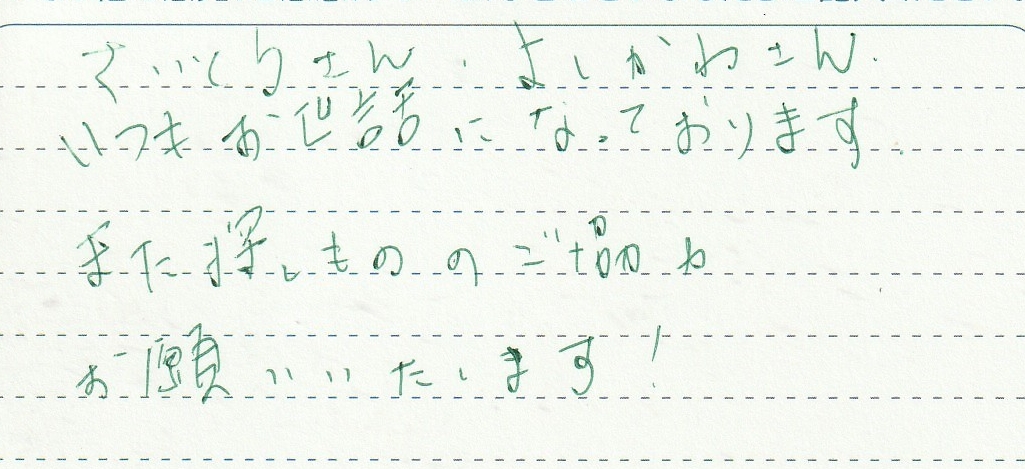 さいとうさん、よしかわさん。
いつもお世話になっております。
また探しもののご協力
お願いいたします!